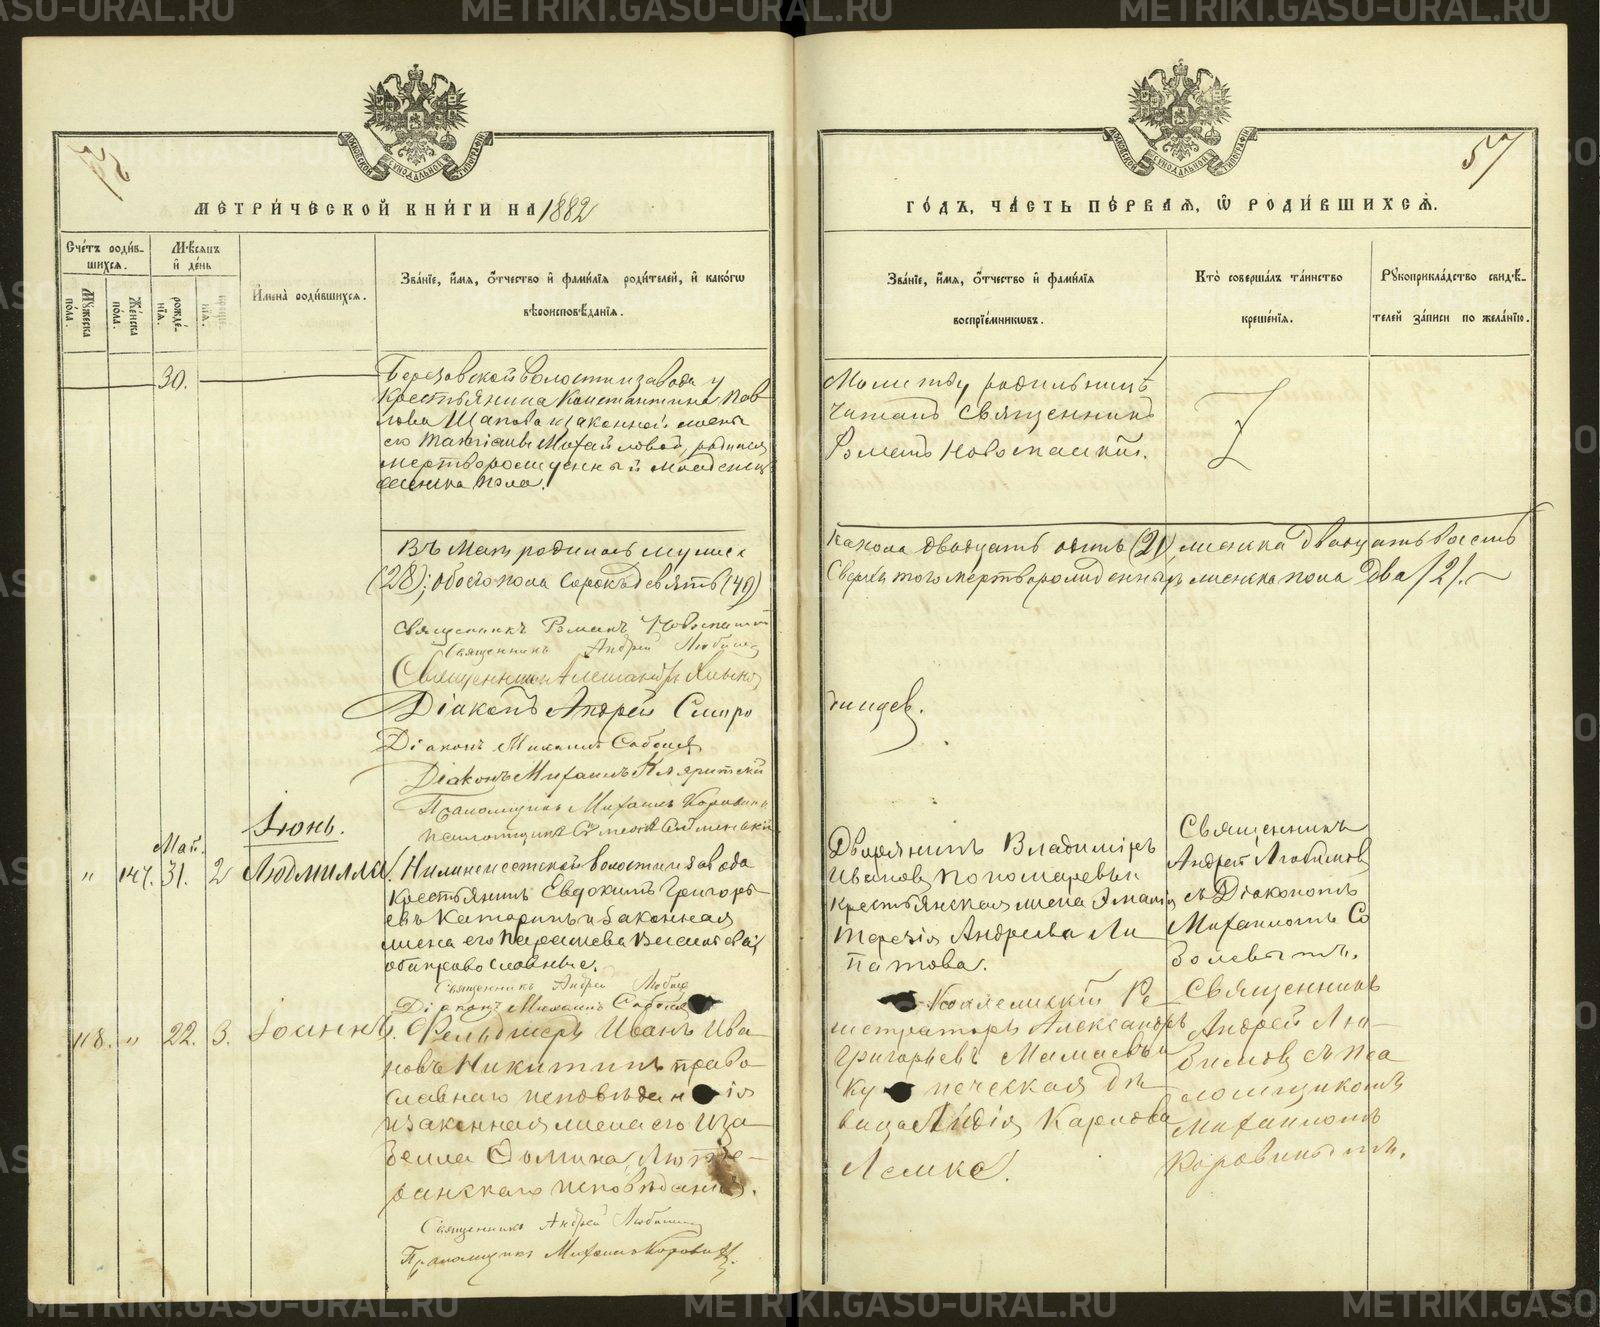 METRIKI.GASO-URAL.RU
57
МЕТРИ́ЧЕСКОЙ КНИ́ГИ НА 1882
ГО́ДЪ, ЧА́СТЬ ПЕ́РВАЯ, Ѽ РОДИ́ВШИХСѦ.
57
Сче́тъ роди́в-
шихсѧ.
Мꙋ́жеска по́ла.
Же́нска по́ла.
Мѣ́сяцъ
и҆ де́нь
рожде́-
нїѧ.
И҆мена̀ роди́вшихсѧ.
Зва́нїе, и҆́мѧ, ѻ҆́тчество и҆ фами́лїѧ роди́телей, и҆ како́гѡ
вѣроисповѣ́данїѧ.
Зва́нїе, и҆́мѧ, ѻ҆́тчество и҆ фами́лїѧ
воспрїе́мникѡвъ.
Кто̀ соверша́лъ та́инство
креще́нїѧ.
Рꙋкоприкла́дство свидѣ́-
телей за́писи по жела́нїю.
30.
Березовской волости и завода у
Крестьянина Константина Пав-
лова Щапова и законной жены
его Татіаны Михайловой, родился
мертворожденный младенецъ
женска пола.
Молитву родильницѣ
читалъ Священникъ
Романъ Новоспаскій.
Въ Маѣ родилось мужеска
(28); обоего пола сорокъ девять (49)
двадцать одинъ (21), женска двадцать восемь
Сверхъ того мертворожденныхъ женска пола два /2/.
Священникъ Романъ Новоспаскій
Священникъ Андрей Любимовъ
Священникъ Александръ
Діаконъ Андрей Сморо
динцев.
Діаконъ Михаилъ Соболев
Діаконъ Михаилъ
Псаломщикъ Михаилъ Коровинъ
Псаломщикъ
Іюнь.
Май.
" 147. 31. 2 Людмилла.
Нижнеисетской волости и завода
Крестьянинъ Евдокимъ Григорь-
евъ Катаринъ и законная
жена его Параскева Васильева;
оба православные.
Дворянинъ Владиміръ
Ивановъ Пономаревъ и
Крестьянская жена
Терезія Андреева Ли
патова.
Священникъ
Андрей Любимовъ
съ Діакономъ
Михаиломъ Со
болевымъ.
Священникъ Андрей Любимовъ
Діаконъ Михаилъ Соболев
118. " 22. 3. Іоаннъ.
Фельдшеръ Иванъ Ива-
новъ Никитинъ право
славнаго исповѣданія
и законная жена его Иза-
белла Фомина, Люте-
ранскаго исповѣданія.
Коллежскій Ре
гистраторъ Александръ
Григорьевъ Мамаевъ и
купеческая дѣ
вица Лидія Карлова
Лемке.
Священникъ
Андрей Лю-
бимовъ съ Пса
ломщикомъ
Михаиломъ
Коровинымъ.
Священникъ Андрей Любимовъ
Псаломщикъ Михаилъ Коровинъ.
METRIKI.GASO-URAL.RU